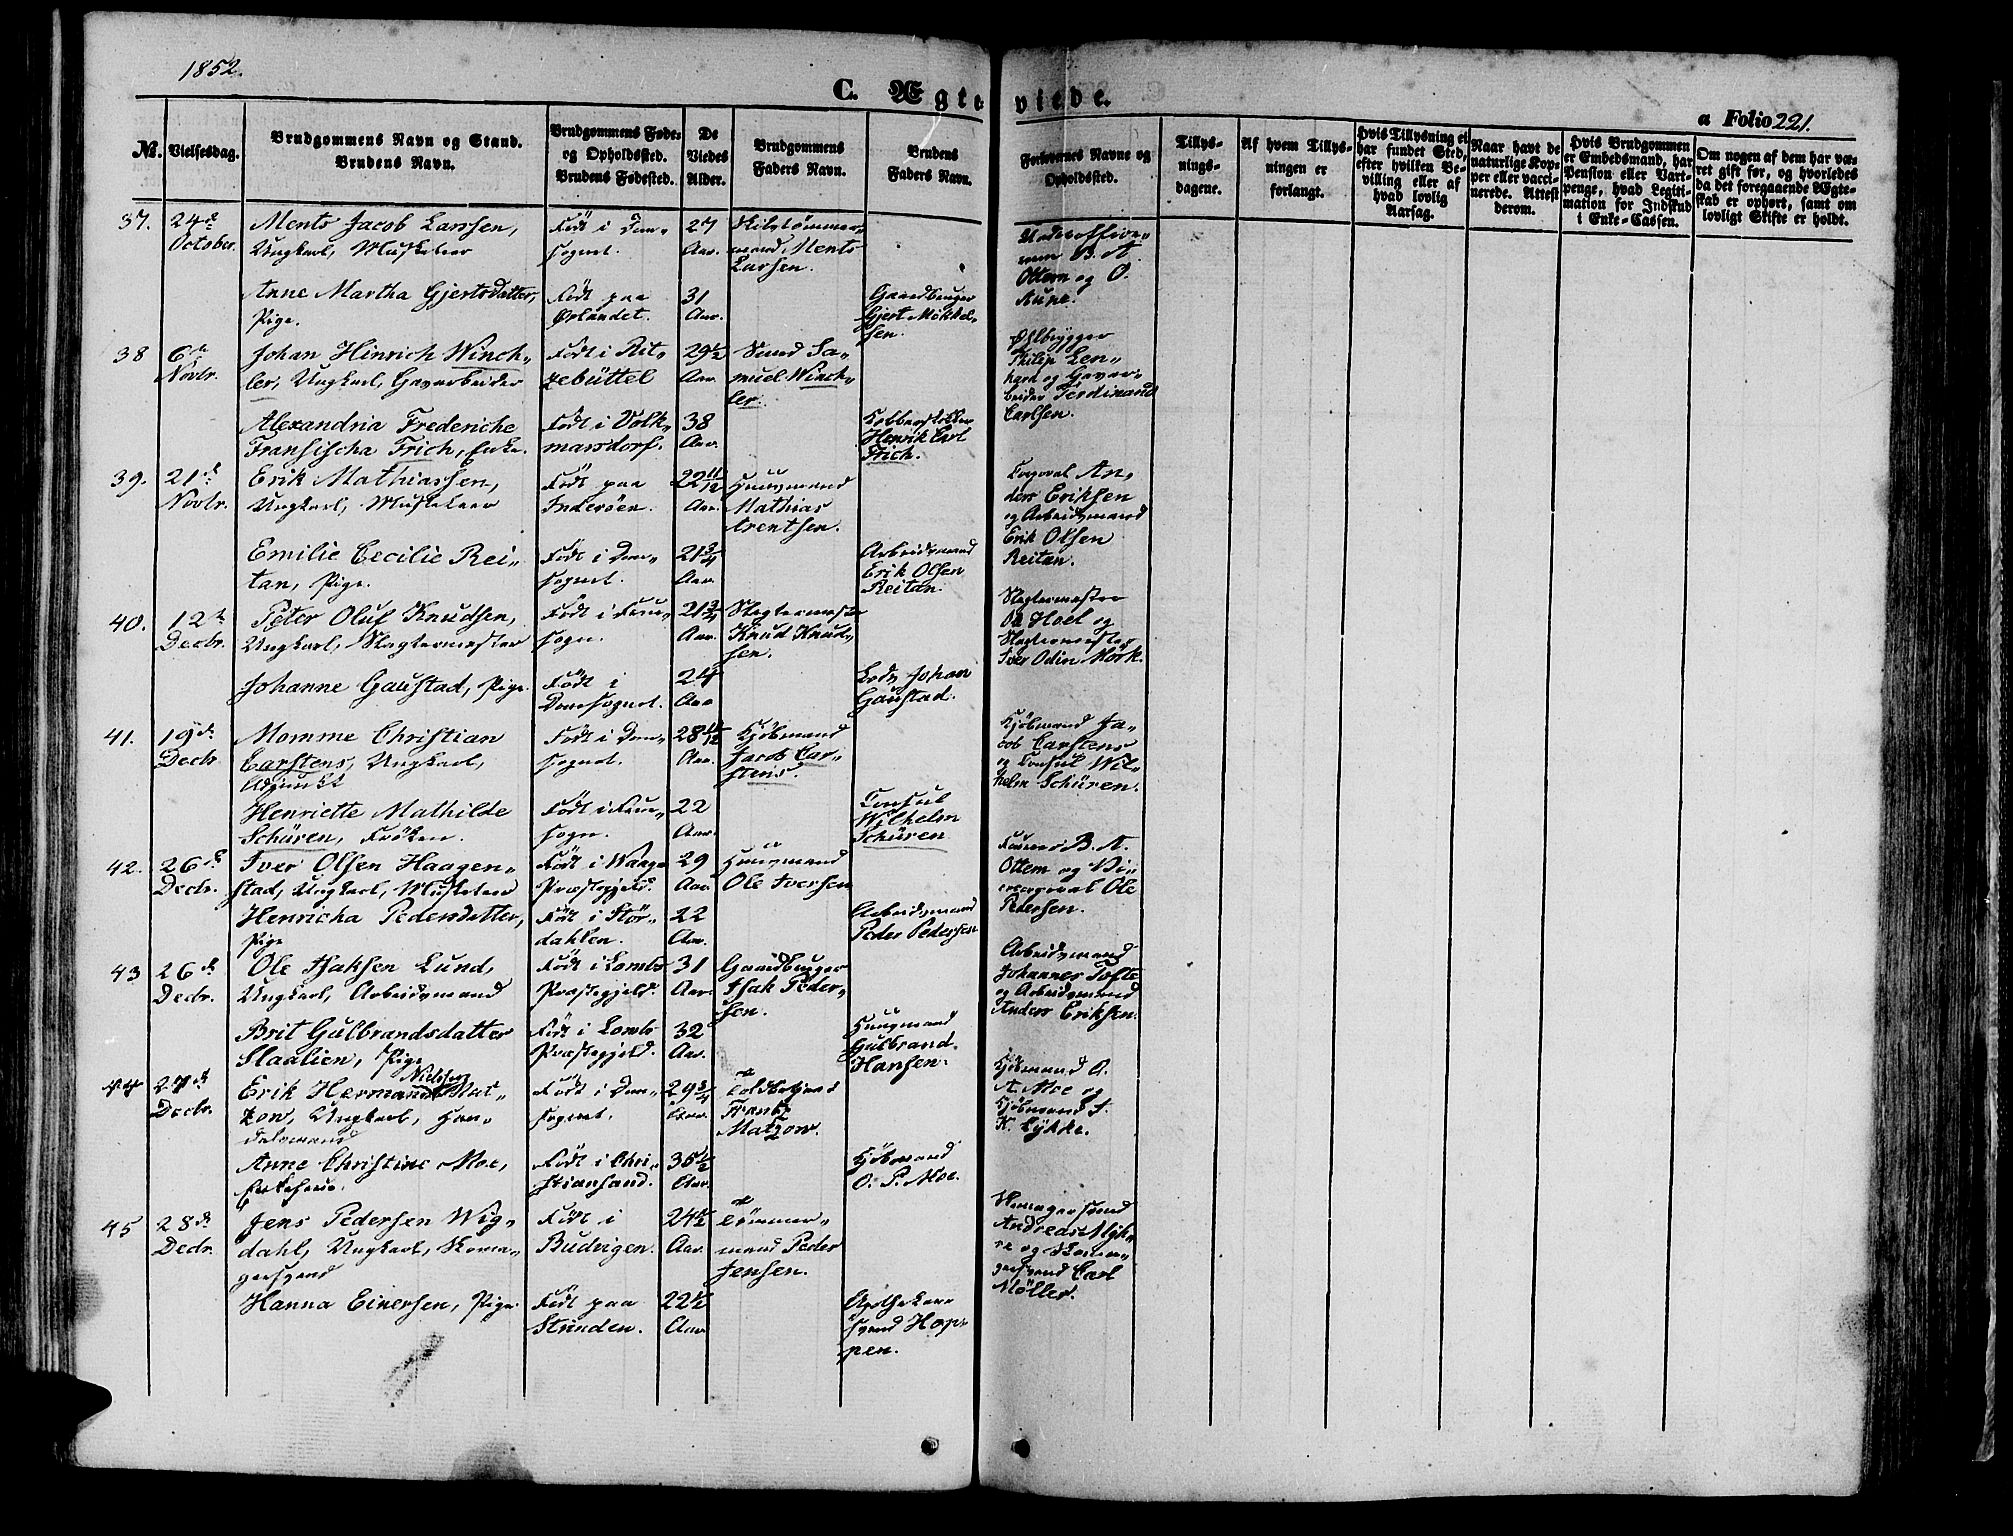 1852.
C. Ægteviede.
a Folio 221.
No. Vielsesdag.
Brudgommens Navn og Stand.
Brudens Navn.
Brudgommens Føde-
og Opholdssted.
Brudens Fødested.
De
Viedes
Alder.
Brudgommens
Faders Navn.
Brudens
Faders Navn.
Forlovernes Navne og
Opholdssted.
Tillys-
nings-
dagene.
Af hvem Tillys-
ningen er
forlangt.
Hvis Tillysning ei
har fundet Sted,
efter hvilken Be-
villing eller af
hvad lovlig
Aarsag.
Naar havt de
naturlige Kop-
per eller vacci-
nerede. Attest
derom.
Hvis Brudgommen
er Embedsmand, har
Pension eller Vart-
penge, hvad Legiti-
mation for Indskud
i Enke-Cassen.
Om nogen af dem har væ-
ret gift før, og hvorledes
da det foregaaende Ægte-
skab er ophørt, samt om
lovligt Skifte er holdt.
37. 24de
October.
Ments Jacob Larssen,
Ungkarl, Musketeer
Født i Dom-
sognet.
27
Aar.
mand, Ments
Larsen.
Underofficer-
B. A.
Ottem og O.
Aune.
Anne Martha Gjertsdatter,
Pige.
Født paa
Ørlandet.
31
Aar.
Gaardbruger
Gjert Mikkel-
sen.
38 6te
Novbr.
Johan Hinrich Winch-
ler, Ungkarl, Gavarbeider
Født i Rit-
zebüttel
29½
Aar.
Smed Sa-
muel Winch-
ler.
Ølbrygger
Philip Len-
hard og Gavar-
beider Ferdinand
Carlsen.
Alexandria Frederiche
Fransischa Frich, Enke.
Født i Volk-
marsdorf.
38
Aar.
Henrik Carl
Frich.
39. 21de
Novbr.
Erik Mathiassen,
Ungkarl, Musketeer
Født paa
Inderøen.
22 11/12
Aar.
Huusmand
Mathias
Arentsen.
Corporal An-
ders Eriksen
og Arbeidsmand
Erik Olsen
Reitan.
Emilie Cecilie Rei-
tan, Pige.
Født i Dom-
sognet.
21¾
Aar.
Arbeidsmand
Erik Olsen
Reitan.
40. 12te
Decbr.
Peter Oluf Knudsen,
Ungkarl, Slagtermester
Født i Frue-
sogn.
21¾
Aar.
Slagtermester
Knud Knud-
sen.
Slagtermester
Ole Hoel og
Slagtermester
Iver Odin Mörk.
Johanne Gaustad, Pige.
Født i
Domsognet.
24
Aar
Lods Johan
Gaustad.
41. 19de
Decbr
Momme Christian
Carstens, Ungkarl,
Adjunkt
Født i Dom-
sognet.
28 11/12
Aar.
Kjöbmand
Jacob Car-
stens.
Kjöbmand Ja-
cob Carstens
og Consul Wil-
helm Schüren.
Henriette Mathilde
Schüren, Frøken.
Født i Frue-
sogn.
22
Aar.
Consul
Wilhelm
Schüren
42. 26de
Decbr.
Iver Olsen Haagen-
stad, Ungkarl, Musketeer
Født i Waage
Præstegjeld.
29
Aar.
Huusmand
Ole Iversen
Fourer B. A.
Ottem og Vi-
cecorporal Ole
Pedersen.
Henricha Pedersdatter,
Pige
Født i Stör-
dahlen.
22
Aar.
Arbeidsmand
Peder Pedersen
43 26de
Decbr.
Ole Isaksen Lund,
Ungkarl, Arbeidsmand
Født i Lomb
Præstegjeld.
31
Aar.
Gaardbruger
Isak Peder-
sen.
Arbeidsmand
Johannes Tofte
og Arbeidsmand
Anders Eriksen.
Brit Gulbrandsdatter
Slaalien, Pige
Født i Lomb
Præstegjeld.
32
Aar.
Huusmand
Gulbrand
Hansen.
44 27de
Decbr.
Nielsen
Erik Hermand Mat-
zow, Ungkarl, Han-
delsmand
Født i Dom-
sognet.
29¾
Aar.
Toldbetjent
Frantz
Matzow.
Kjöbmand O.
A. Moe og
Kjöbmand S.
K. Lykke.
Anne Christine Moe,
Enkefrue.
Født i Chri-
stiansand.
36½
Aar.
Kjöbmand
O. P. Moe.
45 28de
Decbr.
Jens Pedersen Wig-
dahl, Ungkarl, Koma-
gersvend
Født i
Budvigen.
24½
Aar.
Tömmer-
mand Peder
Jensen.
Komagersvend
Andreas Myh-
re og Koma-
gersvend Carl
Möller.
Hanna Einersen, Pige.
Født paa
Stranden.
22½
Aar
Apotheker
svend Hop-
pen.